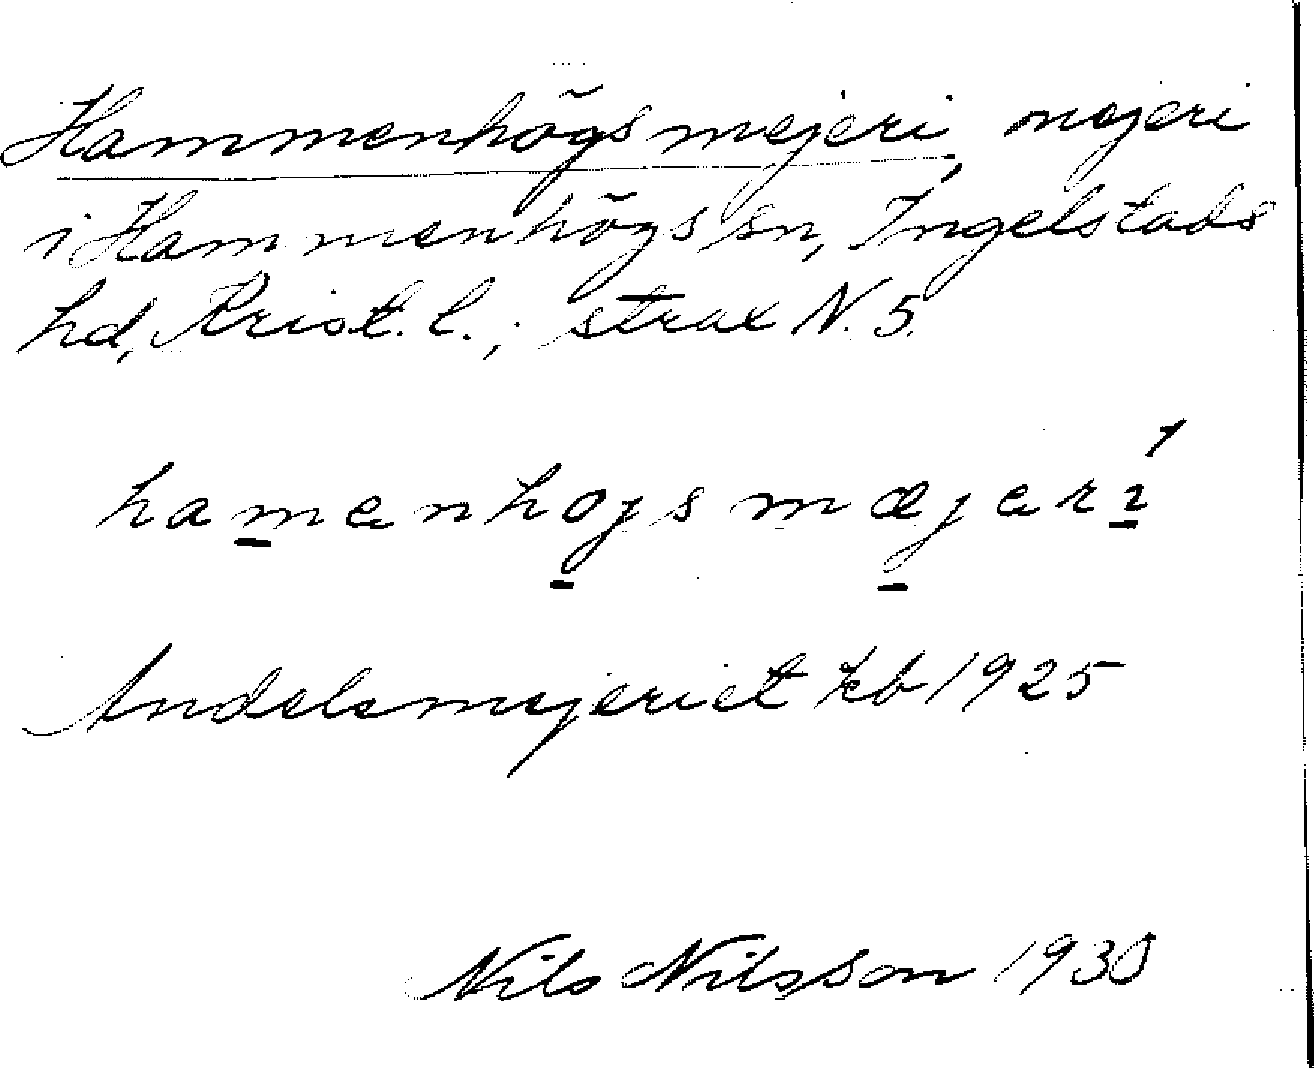 Hammenhögs mejeri, mejeri
i Hammenhögs sn, Ingelstads
hd, Krist. l.; strax N. 5.
hamanhøjs mæjarí
Andelsmejeriet kb 1925
Nils Nilsson 1930